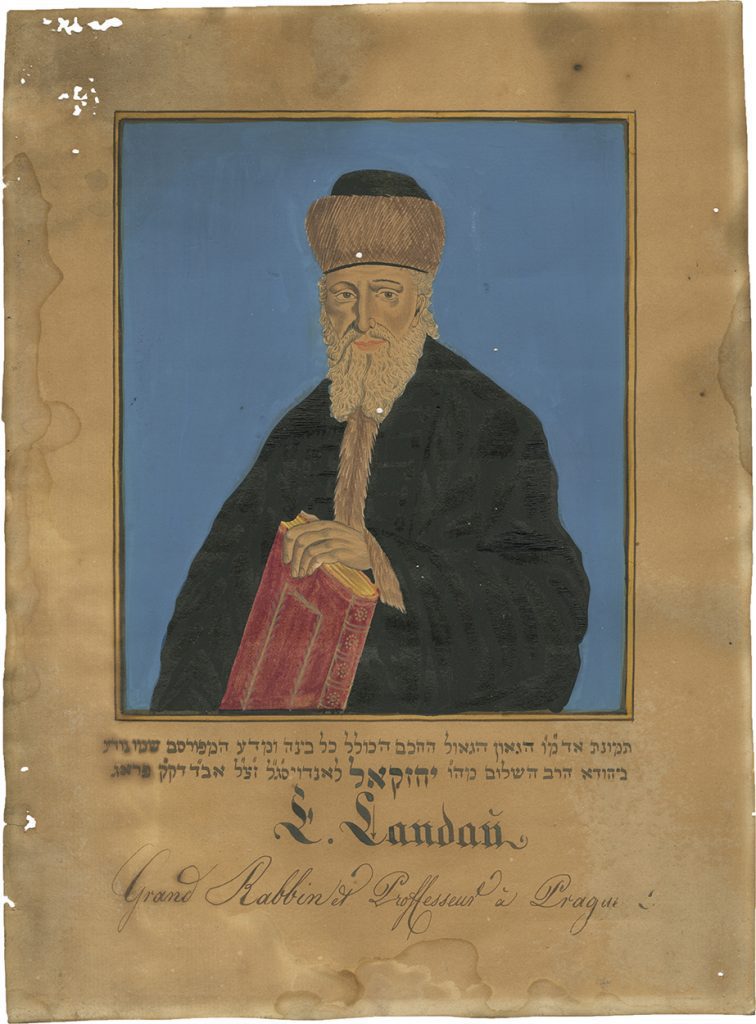 תמונת אדמ״ו הגאון הגאול החכם הכולל כל בינה ומדע המפורסם שמו נודע
ביהודא הרב השלום מהו׳ יחזקאל לאנדויסג״ל זצ״ל אב״ד דק״ק פראג.
L. Landau
Grand Rabbin et Proffesseur à Prague